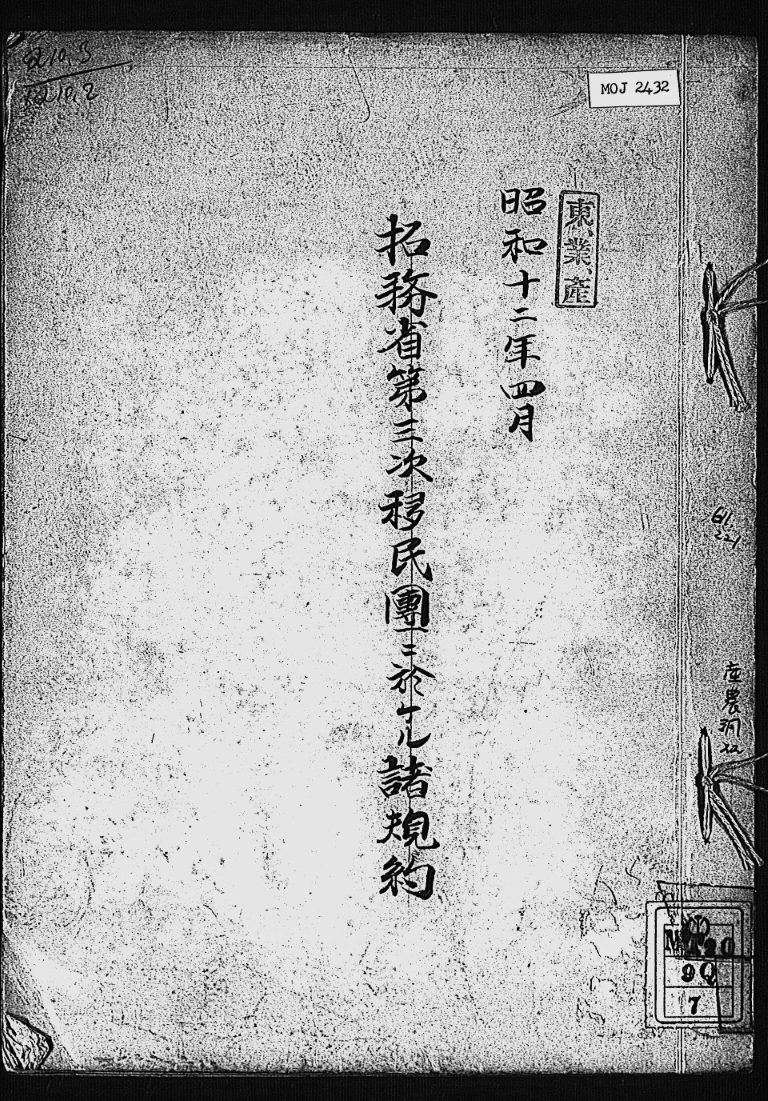 MOJ 2432
東業産
昭和十二年四月
拓務省第三次移民團ニ於ケル諸規約
産農
9Q
7